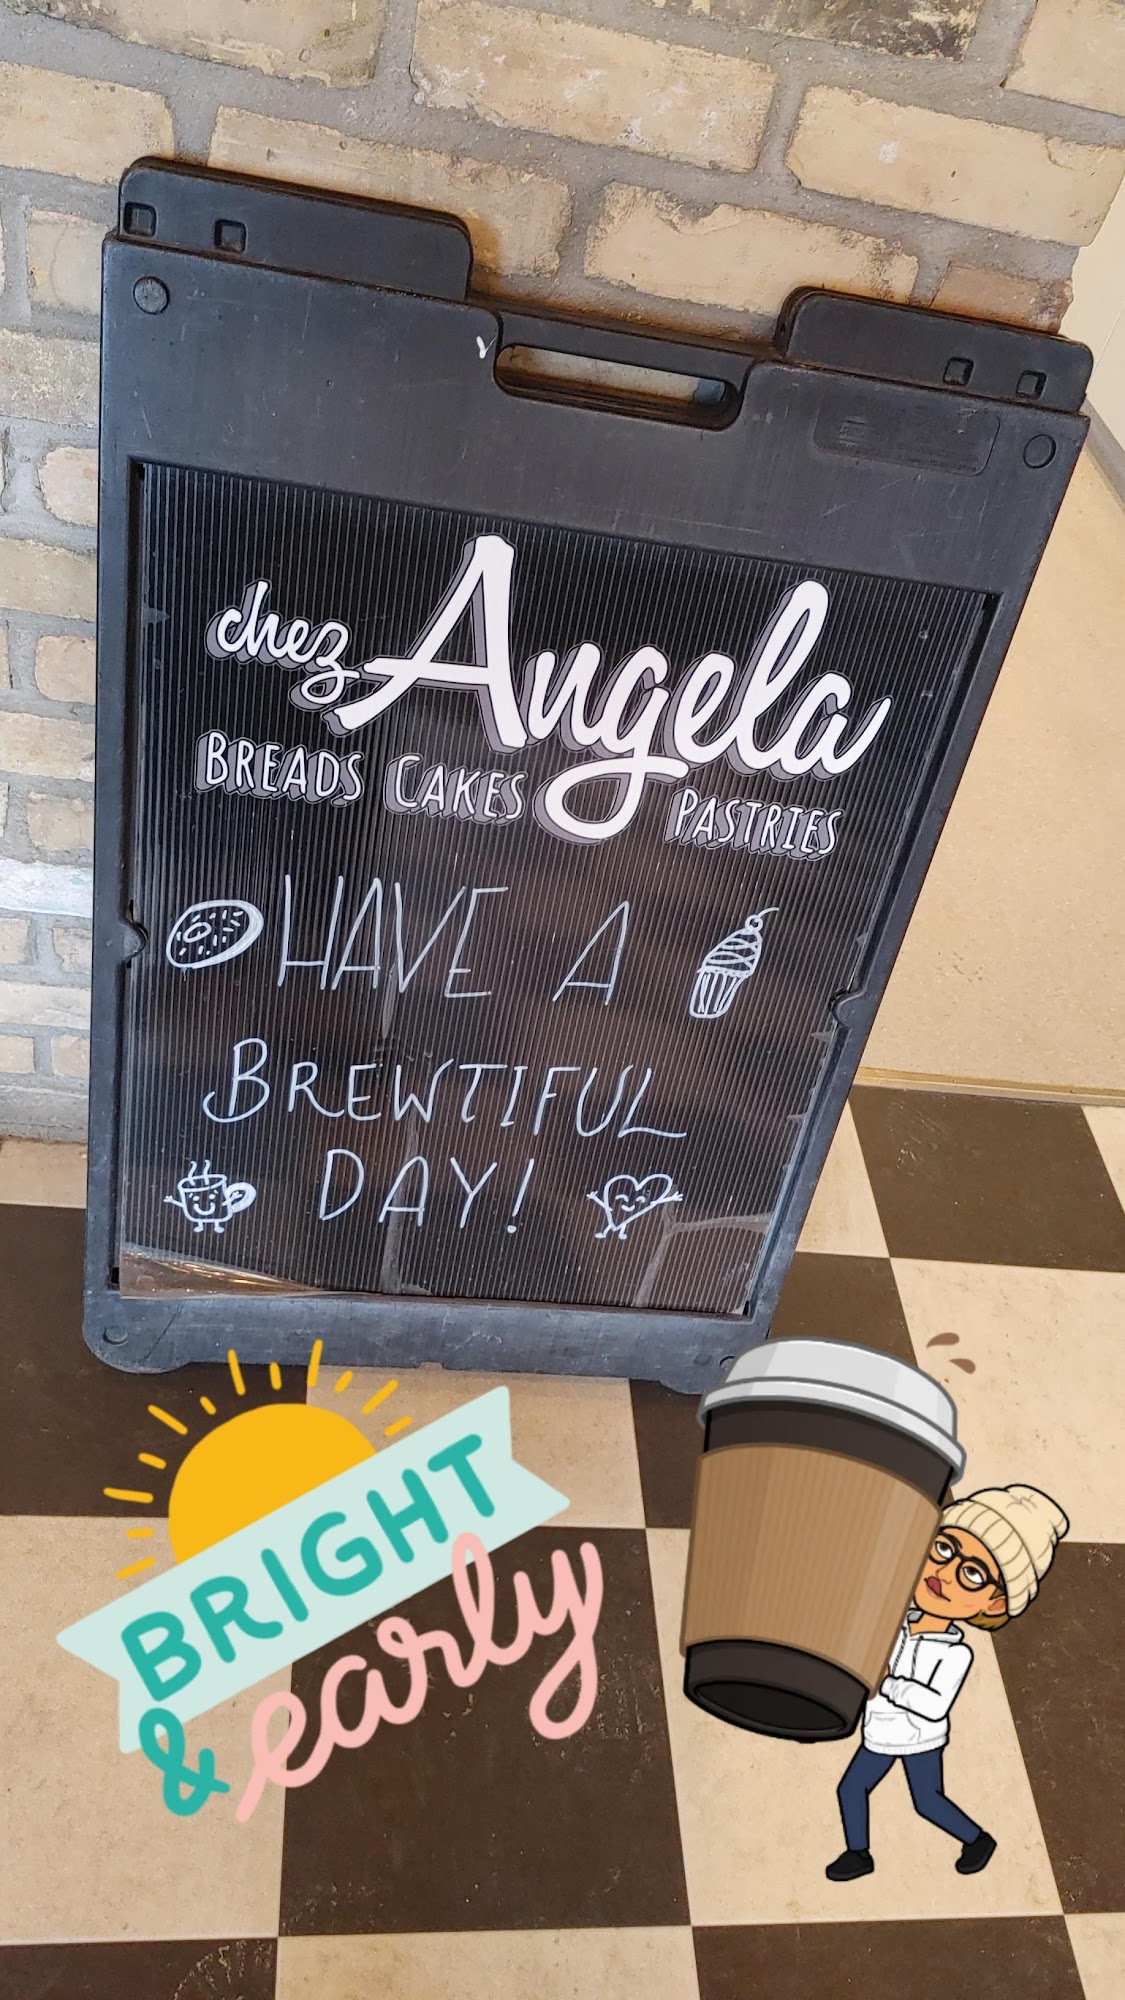 chez Angela
BREADS CAKES PASTRIES
HAVE A
BREWTIFUL
DAY!
BRIGHT
& early